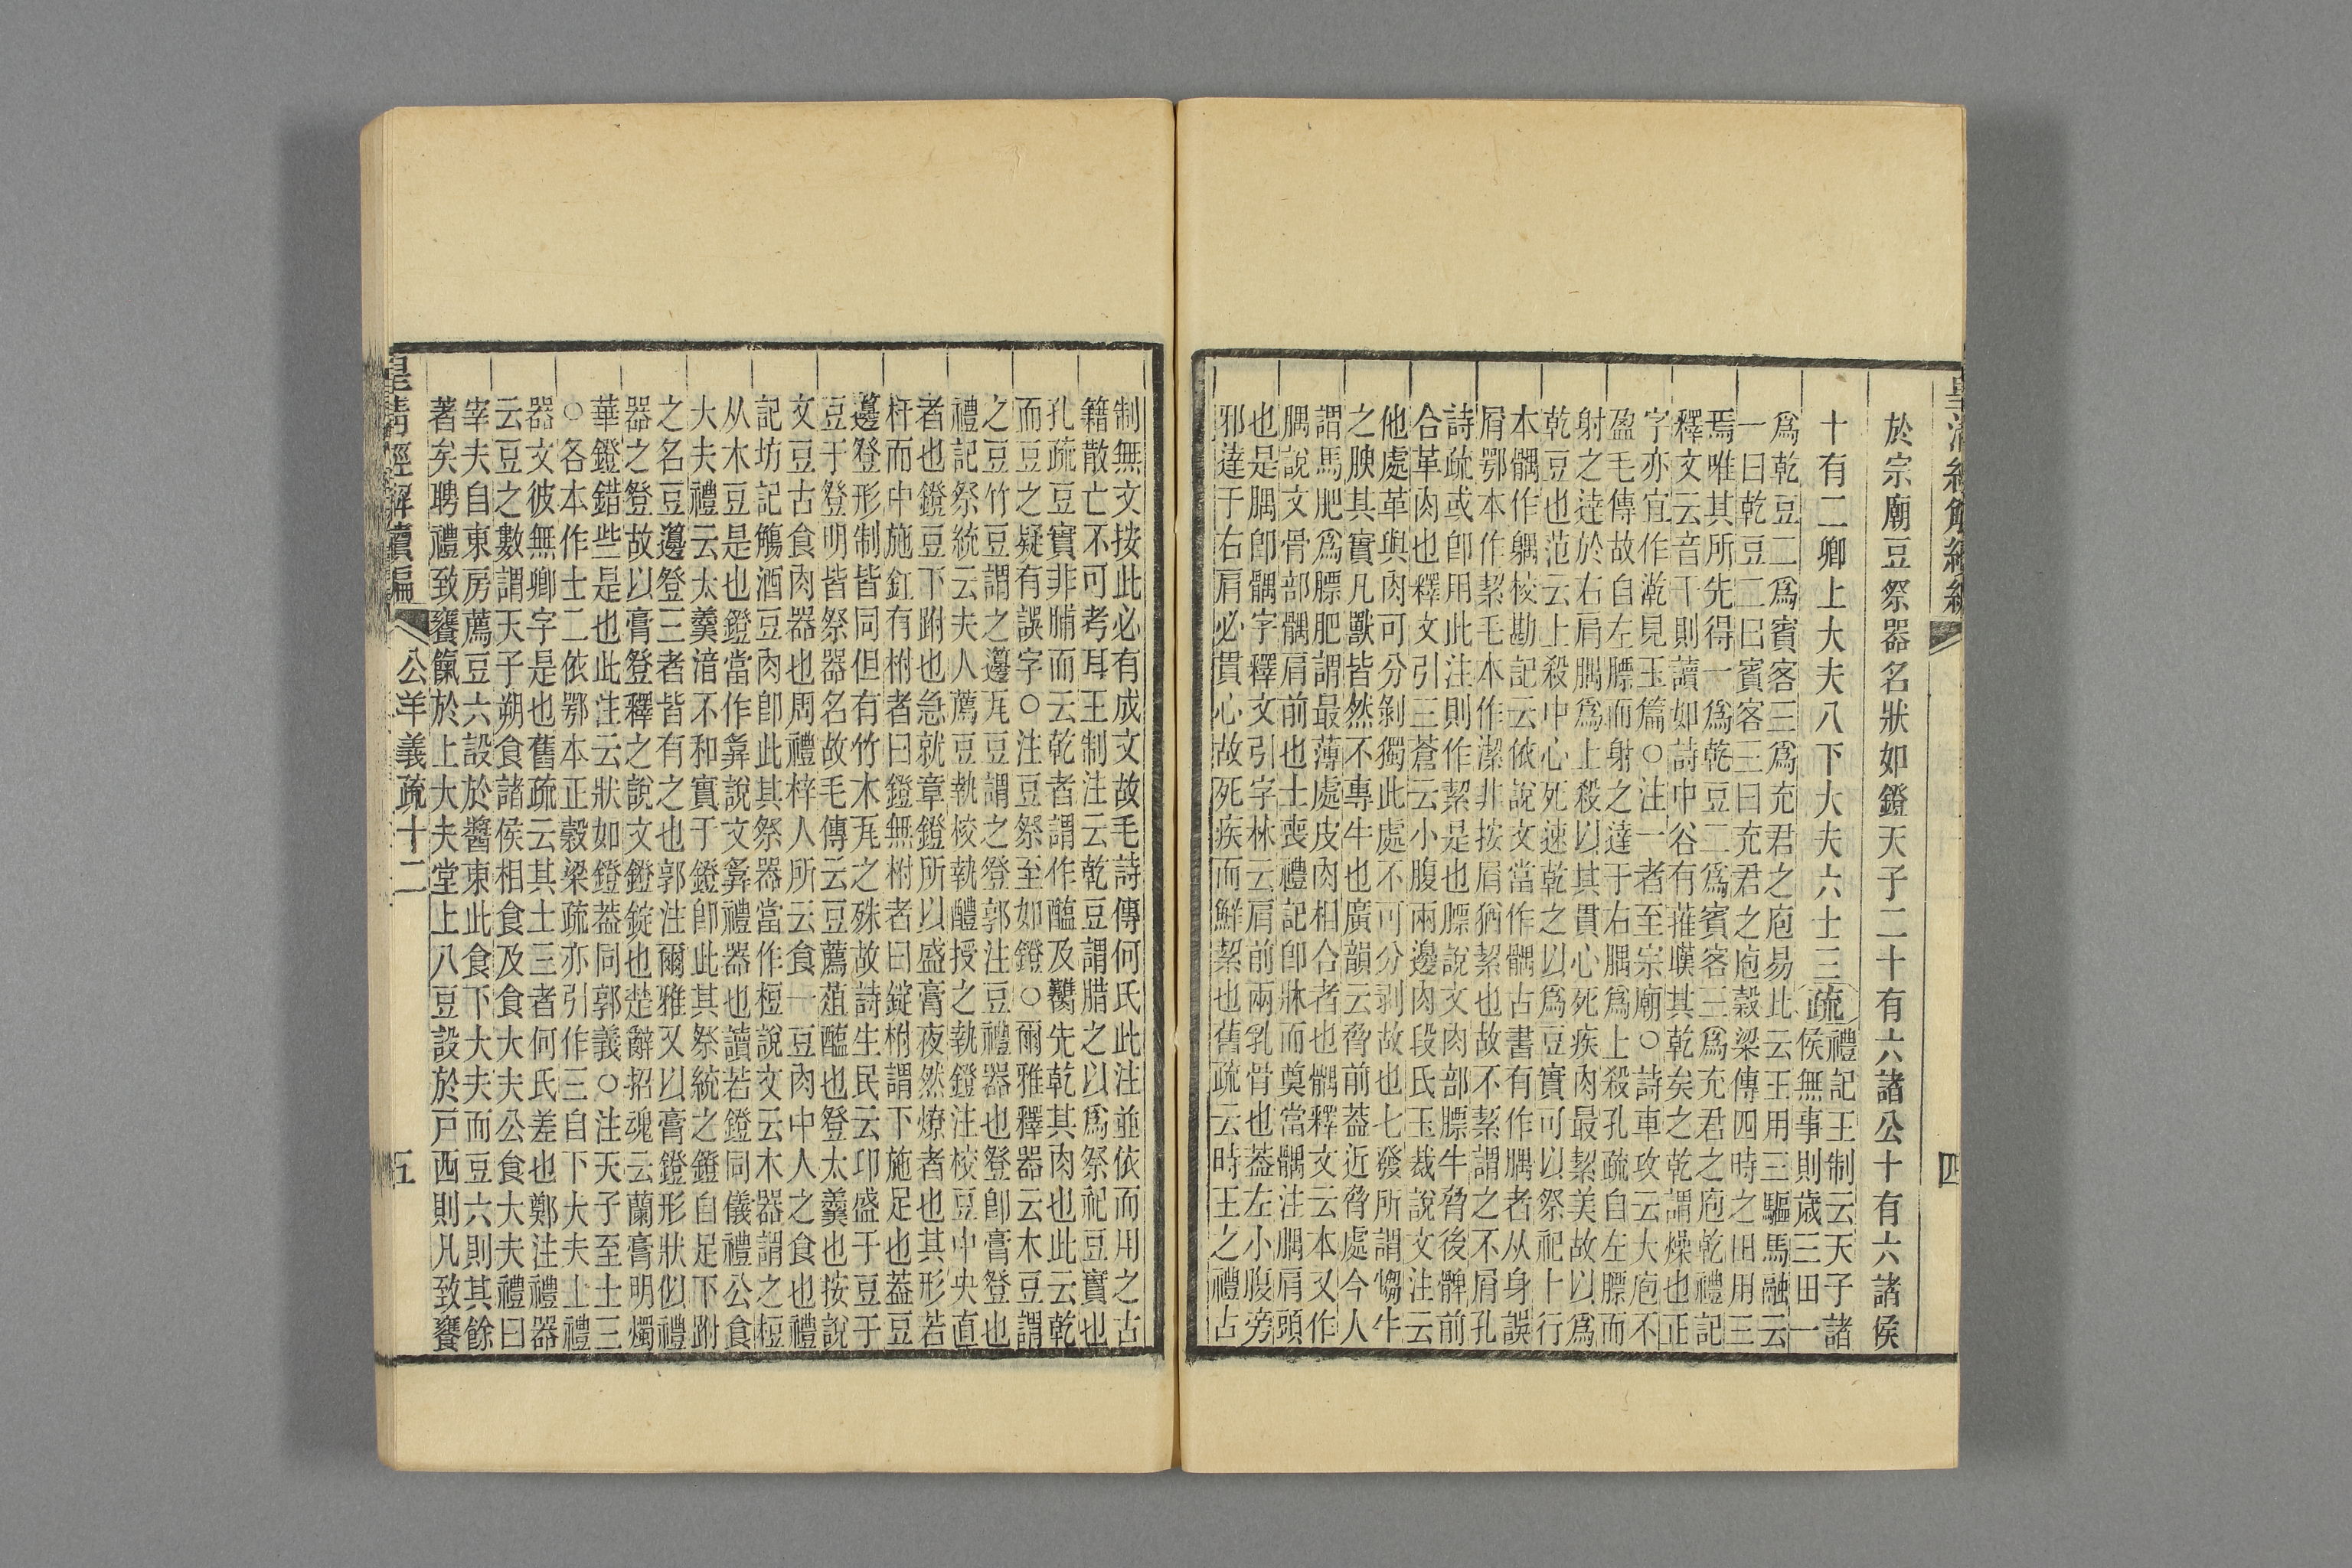 於宗廟豆祭器名狀如鐙天子二十有六諸公十有六諸侯
十有二卿上大夫八下大夫六士三疏禮記王制云天子諸
侯無事則歲三田一
爲乾豆二爲賓客三爲充君之庖易此云王用三驅馬融云
一曰乾豆二曰賓客三曰充君之庖穀梁傳四時之田用三
焉唯其所先得一爲乾豆二爲賓客三爲充君之庖乾禮記
釋文云音干則讀如詩中谷有蓷嘆其乾矣之乾謂燥也正
字亦宜作漧見玉篇○注一者至宗廟○詩車攻云大庖不
盈毛傳故自左膘而射之達于右腢爲上殺孔疏自左膘而
射之達於右肩腢爲上殺以其貫心死疾肉最絜美故以爲
乾豆也范云上殺中心死速乾之以爲豆實可以祭祀十行
本髃作校勘記云依說文當作髃古書有作腢者从身誤
屑鄂本作絜毛本作潔非按屑猶絜也故不絜謂之不屑孔
詩疏或卽用此注則作絜是也膘說文肉部膘牛脅後髀前
合革肉也釋文引三蒼云小腹兩邊肉段氏玉裁說文注云
他處革與肉可分剝獨此處不可分剝故也七發所謂犓牛
之腴其實凡獸皆然不專牛也廣韻云脅前葢近脅處今人
謂馬肥爲膘肥謂最薄處皮肉相合者也髃釋文云本又作
腢說文骨部髃肩前也士喪禮記卽牀而奠當髃注腢肩頭
也是腢卽髃字釋文引字林云肩前兩乳骨也葢左小腹旁
邪達于右肩必貫心故死疾而鮮絜也舊疏云時王之禮古
四
制無文按此必有成文故毛詩傳何氏此注並依而用之古
籍散亡不可考耳王制注云乾豆謂腊之以爲祭祀豆實也
孔疏豆實非脯而云乾者謂作醢及臡先乾其肉也此云乾
而豆之疑有誤字○注豆祭至如鐙○爾雅釋器云木豆謂
之豆竹豆謂之籩瓦豆謂之登郭注豆禮器也登卽膏登也
禮記祭統云夫人薦豆執校執醴授之執鐙注校豆中央直
者也鐙豆下跗也急就章鐙所以盛膏夜然燎者也其形若
杅而中施釭有柎者曰鐙無柎者曰錠柎謂下施足也葢豆
籩登形制皆同但有竹木瓦之殊故詩生民云卬盛于豆于
豆于登明皆祭器名故毛傳云豆薦葅醢也登太羹也按說
文豆古食肉器也周禮梓人所云食一豆肉中人之食也禮
記坊記觴酒豆肉卽此其祭器當作梪說文云木器謂之梪
从木豆是也鐙當作𢍪說文𢍪禮器也讀若鐙同儀禮公食
大夫禮云太羹湆不和實于鐙卽此其祭統之鐙自足下跗
之名豆籩登三者皆有之也郭注爾雅又以膏鐙形狀似禮
器之登故以膏登釋之說文鐙錠也楚辭招魂云蘭膏明燭
華鐙錯些是也此注云狀如鐙葢同郭義○注天子至士三
○各本作士二依鄂本正穀梁疏亦引作三自下大夫上禮
器文彼無卿字是也舊疏云其士三者何氏差也鄭注禮器
云豆之數謂天子朔食諸侯相食及食大夫公食大夫禮曰
宰夫自東房薦豆六設於醬東此食下大夫而豆六則其餘
著矣聘禮致饔餼於上大夫堂上八豆設於戶西則凡致饔
皇清經解續編 公羊義疏十二 五